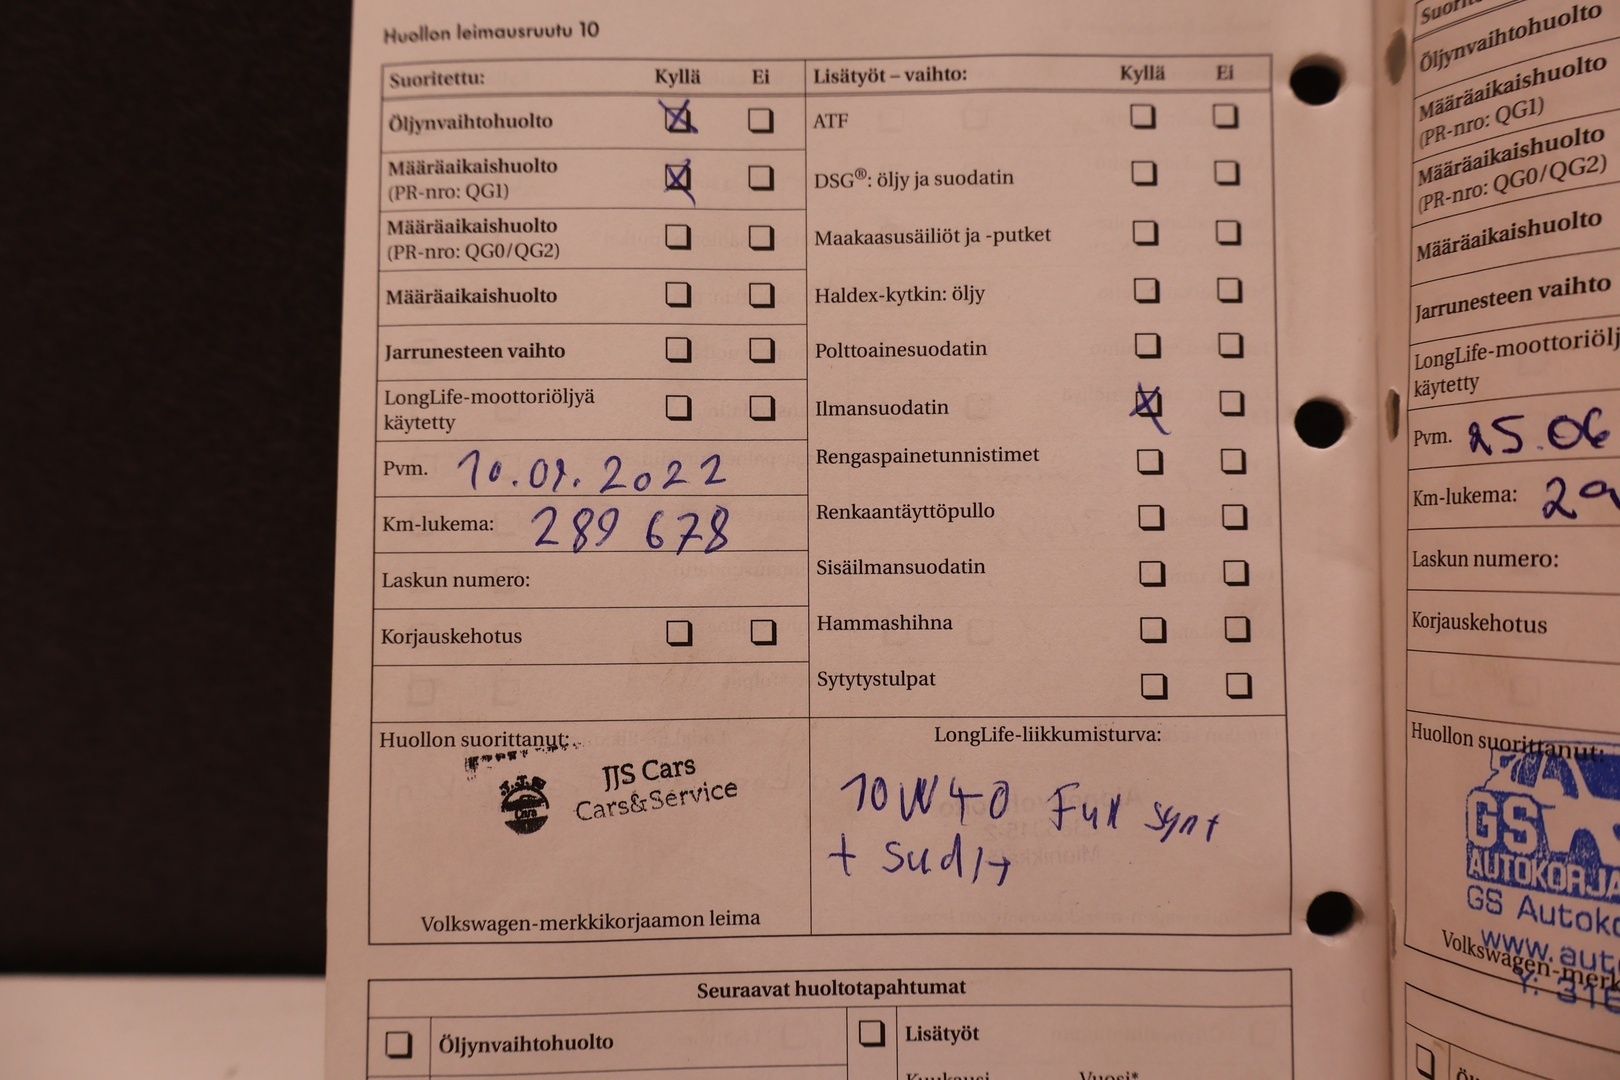 Huollon leimausruutu 10
Suoritettu: Kyllä Ei
Öljynvaihtohuolto
Määräaikaishuolto
(PR-nro: QG1)
Määräaikaishuolto
(PR-nro: QG0/QG2)
Määräaikaishuolto
Jarrunesteen vaihto
LongLife-moottoriöljyä
käytetty
Pvm. 10.01.2022
Km-lukema: 289 678
Laskun numero:
Korjauskehotus
Lisätyöt – vaihto: Kyllä Ei
ATF
DSG®: öljy ja suodatin
Maakaasusäiliöt ja -putket
Haldex-kytkin: öljy
Polttoainesuodatin
Ilmansuodatin
Rengaspainetunnistimet
Renkaantäyttöpullo
Sisäilmansuodatin
Hammashihna
Sytytystulpat
Huollon suorittanut:
J.J.S
Cars
JJS Cars
Cars&Service
Volkswagen-merkkikorjaamon leima
LongLife-liikkumisturva:
10W40 Full synt
+ Sudit
Seuraavat huoltotapahtumat
Öljynvaihtohuolto
Lisätyöt
Kuukausi Vuosi*
Öljynvaihtohuolto
Määräaikaishuolto
(PR-nro: QG1)
Määräaikaishuolto
(PR-nro: QG0/QG2)
Määräaikaishuolto
Jarrunesteen vaihto
LongLife-moottoriölj
käytetty
Pvm. 25.06
Km-lukema: 29
Laskun numero:
Korjauskehotus
Huollon suorittanut:
GS
AUTOKORJA
GS Autoko
www.aut
Y: 316
Volkswagen-merk